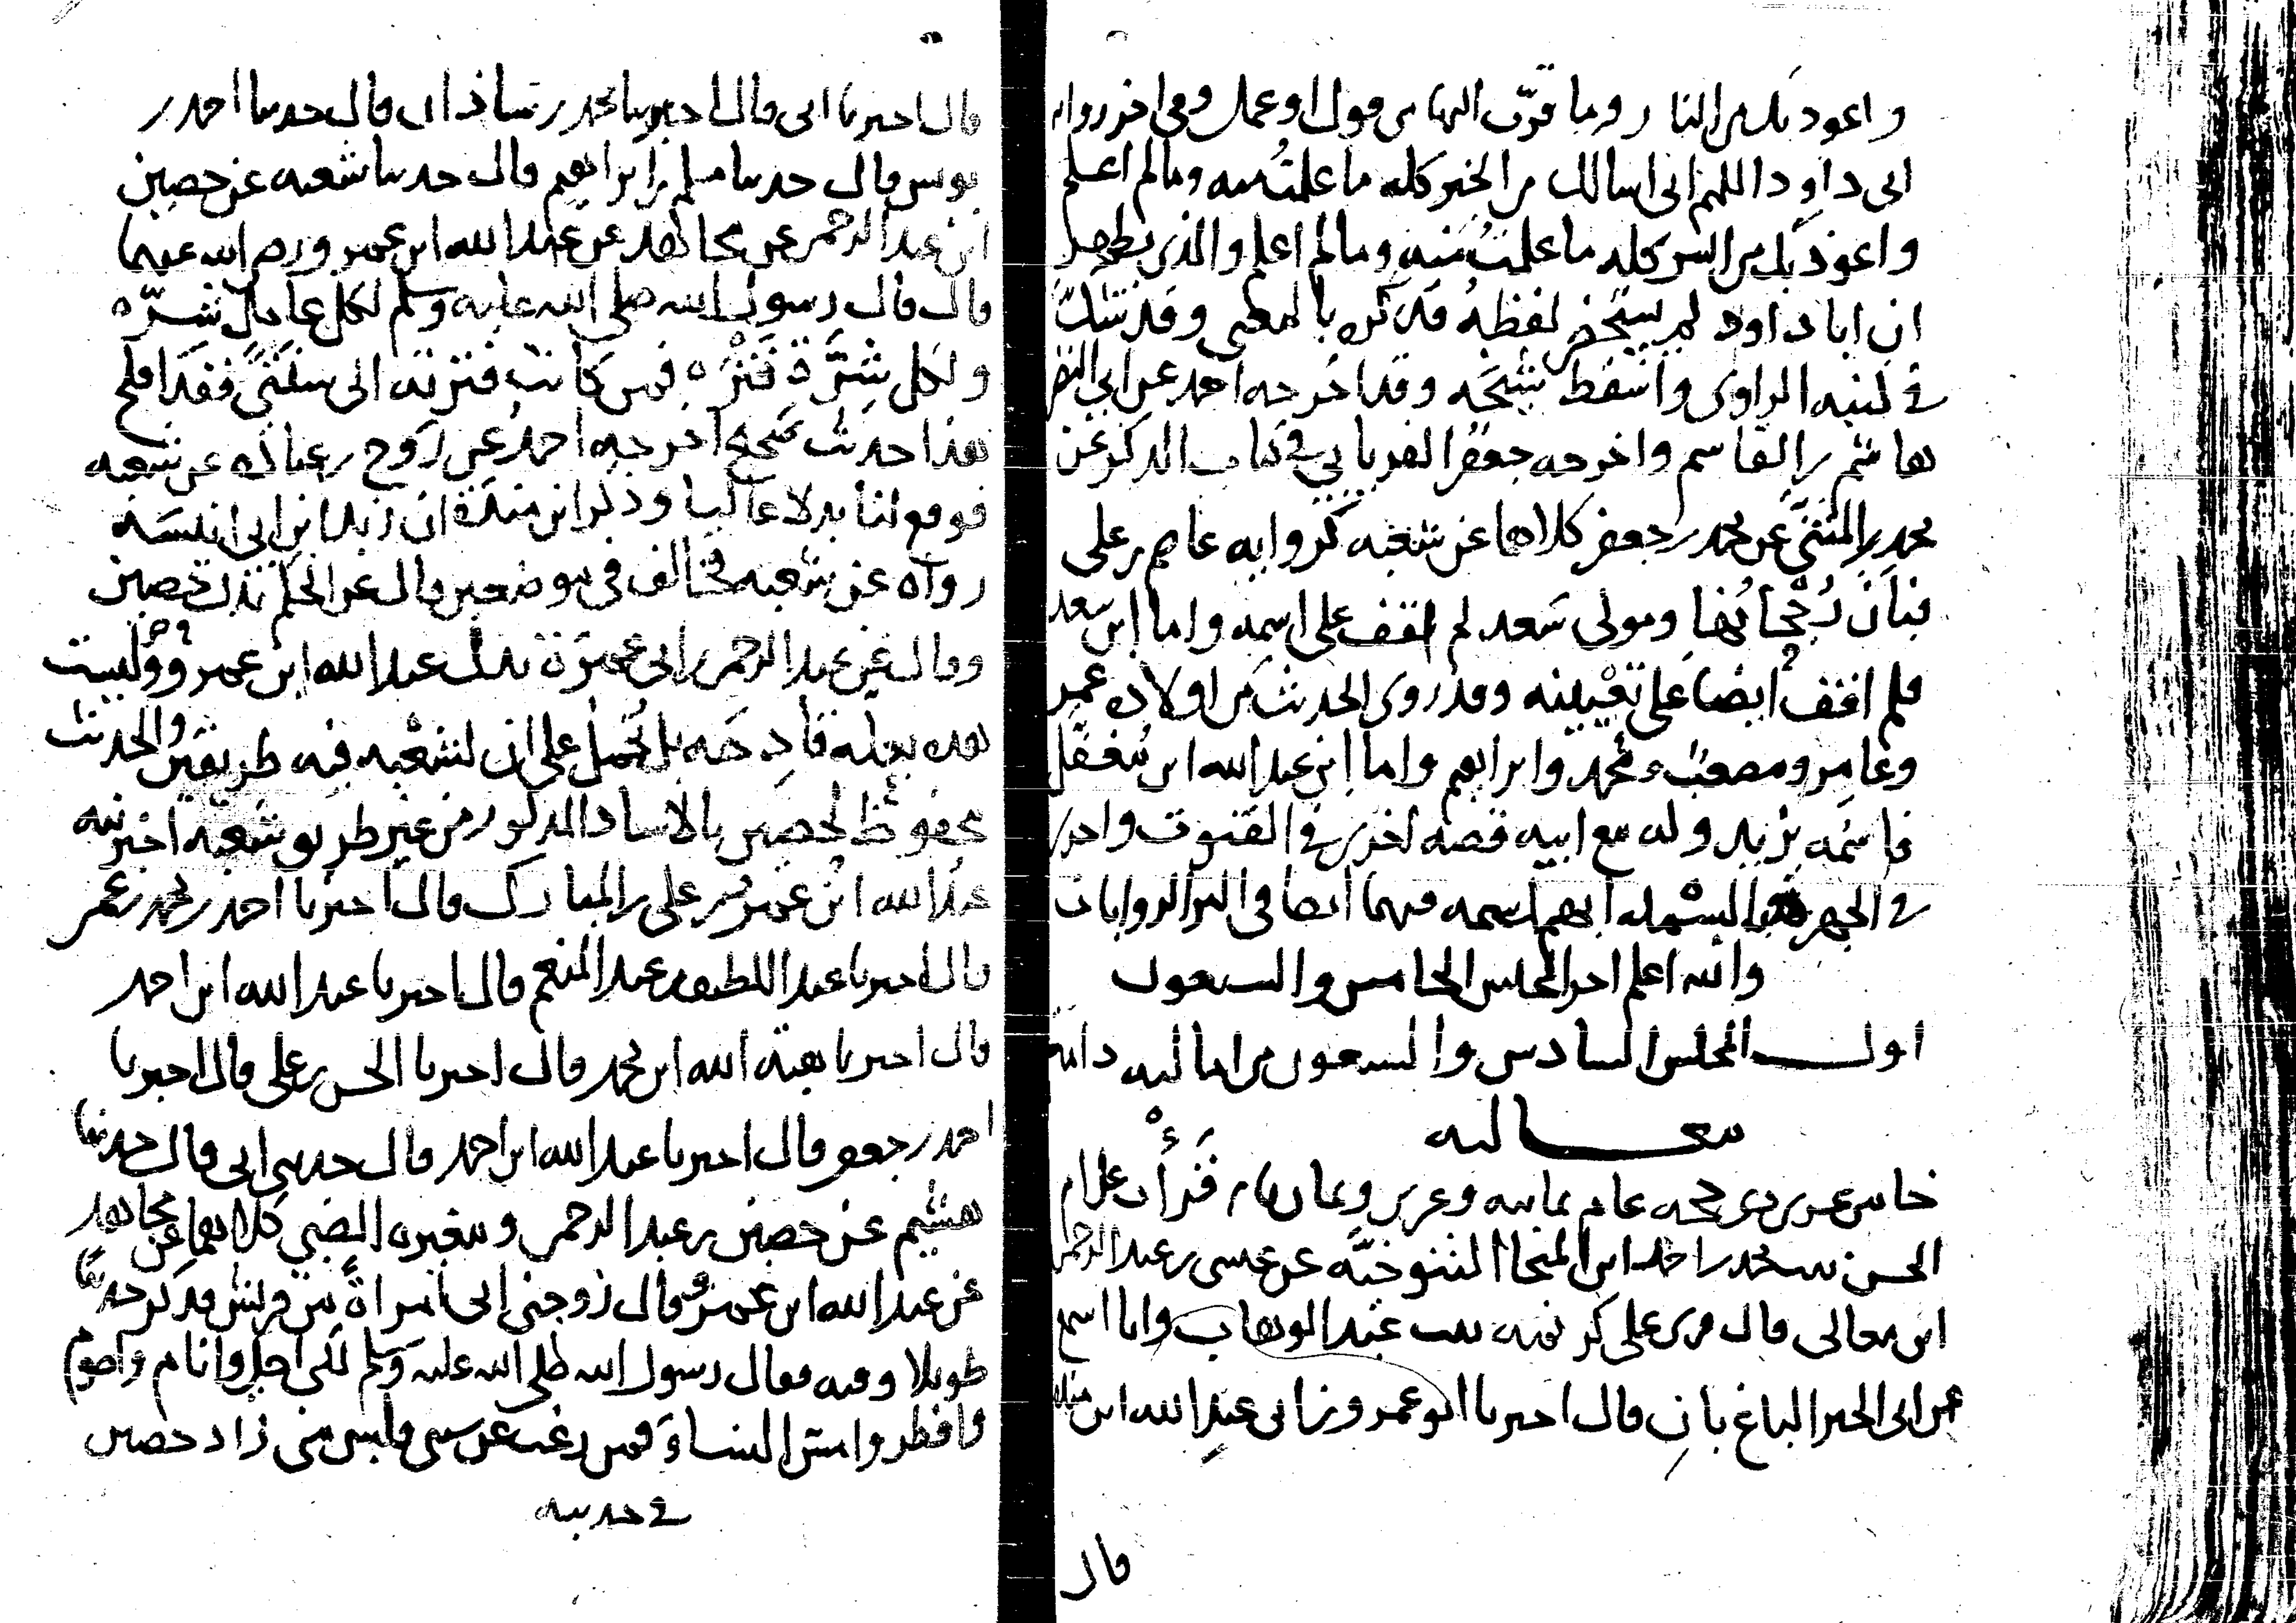 واعوذ بك من النار وما قرّب اليها من قول او عمل وفي اخر رواية
ابي داود اللهم اني اسالك من الخير كله ما علمتُ منه وما لم اعلم
واعوذ بك من الشر كله ما علمتُ منه وما لم اعلم والذي يظهر
ان ابا داود لم يستحضر لفظهُ فذكره بالمعنى وقد شكّ
في كنيه الراوي واسقط شيخَه وقد اخرجه احمد عن ابي النضر
هاشم بن القاسم واخرجه جعفر الفريابي في كتاب الذكر عن
محمد بن المثنى عن محمد بن جعفر كلاهما عن شعبه كروايه عاصم بن علي
فبان رُجْحانُها ومولى سَعد لم اقف على اسمه واما ابن سعد
فلم اقف ايضا على تعْيينه وقد روى الحديث من اولاده عمر
وعامر ومصعب ومحمد وابراهيم واما ابن عبد الله ابن مُغفّل
فاسمُه يزيد وله مع ابيه قصه اخرى في القنوت واخرى
في الجهر بالبسْمله ابهم اسمه فيهما ايضا في اكثر الروايات
والله اعلم اخر المجلس الخامس والسبعون
اول المجلس السادس والسبعون من اماليه دامت
معاليه
خامس عشر ذي حجه عام ثمانيه وعشرين وثمان مايه قَرأْت على ام
الحسن بنت محمد بن احمد ابن المنجا التنوخيَّه عن عيسى بن عبد الرحمن
ابن معالي قال قري على كريمه بنت عبد الوهاب وانا اسمع
عن ابي الخير الباغبان قال اخبرنا ابو عمرو بن ابي عبد الله ابن منده
قال
قال اخبرنا ابي قال اخبرنا محمد بن شاذان قال حدثنا احمد بن
يونس قال حدثنا مسلم بن ابراهيم قال حدثنا شعبه عن حصين
ابن عبد الرحمن عن مجاهد عن عبد الله ابن عمرو رضي الله عنهما
قال قال رسول الله صلى الله عليه وسلم لكل عامل شرّه
ولكل شِرَّة فَتْرَه فمن كانت فترته الى سنتي فقد افلح
هذا حديث صحيح اخرجه احمد عن رَوح بن عباده عن شعبه
فوقع لنا بدلا عاليا وذكر ابن مندَة ان زيد ابن ابي انيسَه
رواه عن شعبه فخالف في موضعين قال عن الحكم بدل حصين
وقال عن عبد الرحمن بن ابي عمرة بدل عبد الله ابن عمرو وليست
هذه بعله قادِحَه بل تُحمل على ان لشعْبه فيه طريقين والحديث
محفوظ لحصين بالاسناد المذكور من غير طريق شعبه اخبرنيه
عبد الله ابن عمر بن علي بن المبارك قال اخبرنا احمد بن محمد بن عمر
قال اخبرنا عبد اللطيف بن عبد المنعم قال اخبرنا عبد الله ابن احمد
قال اخبرنا هبة الله ابن محمد قال اخبرنا الحسن بن علي قال اخبرنا
احمد بن جعفر قال اخبرنا عبد الله ابن احمد قال حدثني ابي قال حدثنا
هشيم عن حصين بن عبد الرحمن ومغيره الضبي كلاهما عن مجاهد
عن عبد الله ابن عمرو قال زوجني ابي امراةً من قريش فذكر حديثا
طويلا وفيه فقال رسول الله صلى الله عليه وسلم لكني اصلي وانام واصوم
وافطر وامس النساءَ فمن رغب عن سنتي فليس مني زاد حصين
في حديثه